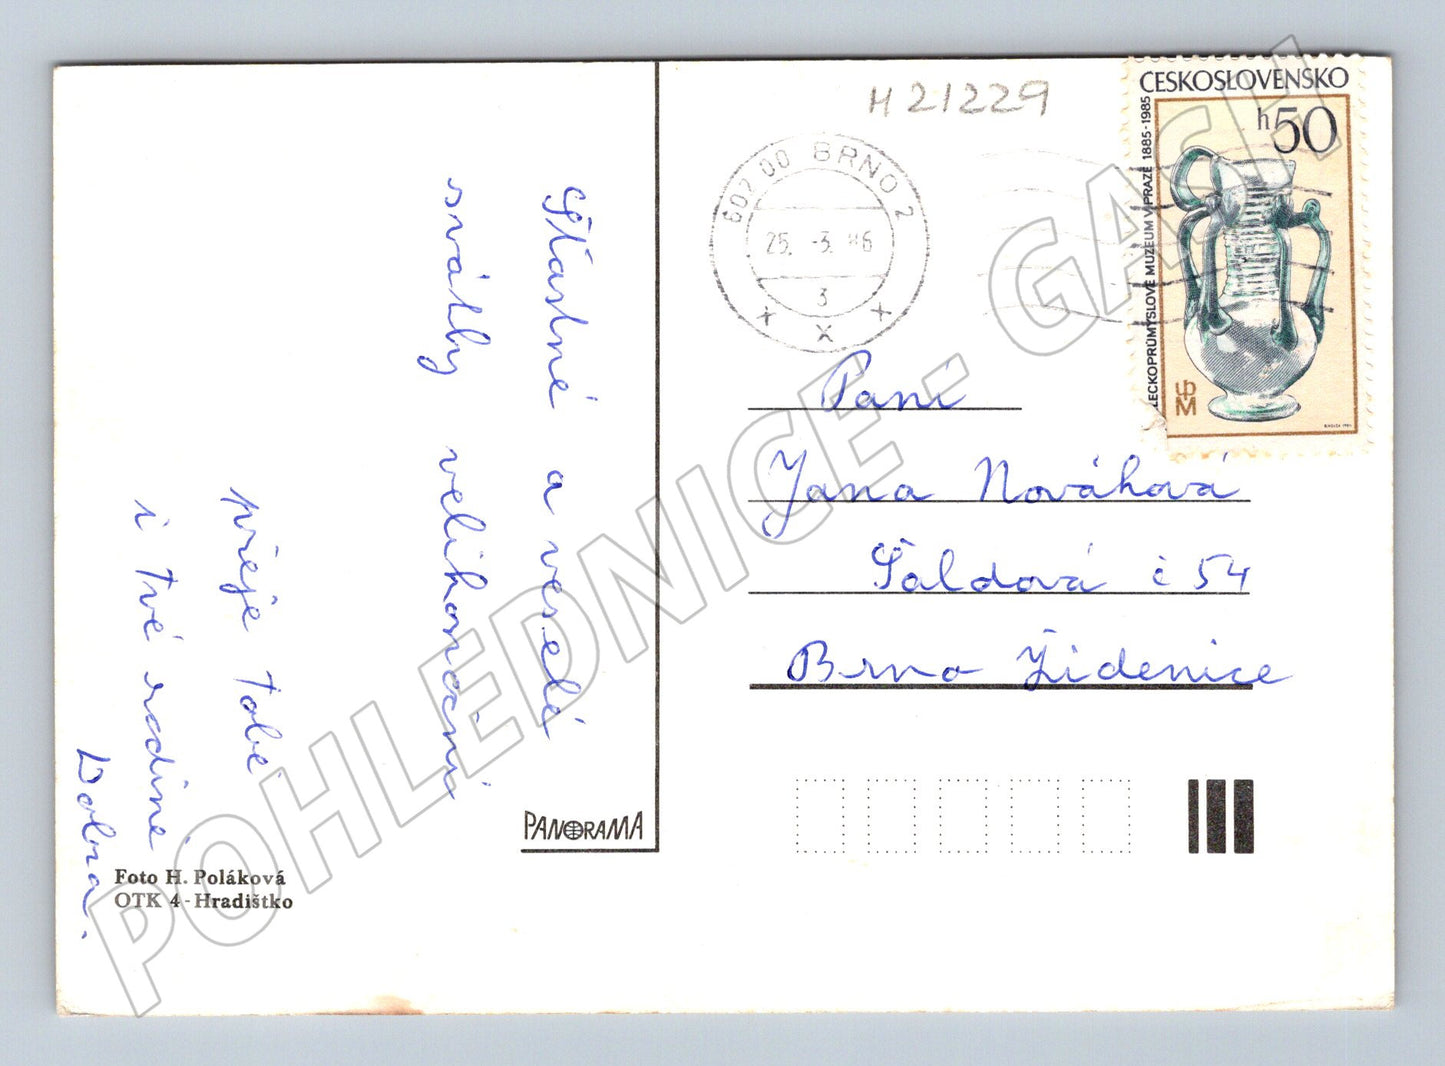 Šťastné a veselé
svátky velikonoční
přeje Tobě
i Tvé rodině
Foto H. Poláková
OTK 4 - Hradištko
PANORAMA
H 21229
602 00 BRNO 2
25. -3. 86
3
x x x
ČESKOSLOVENSKO
h50
LECKOPRŮMYSLOVÉ MUZEUM V PRAZE 1885-1985
UPM
Paní
Jana Nováková
Šaldová č 54
Brno Židenice
POHLEDNICE - GASH